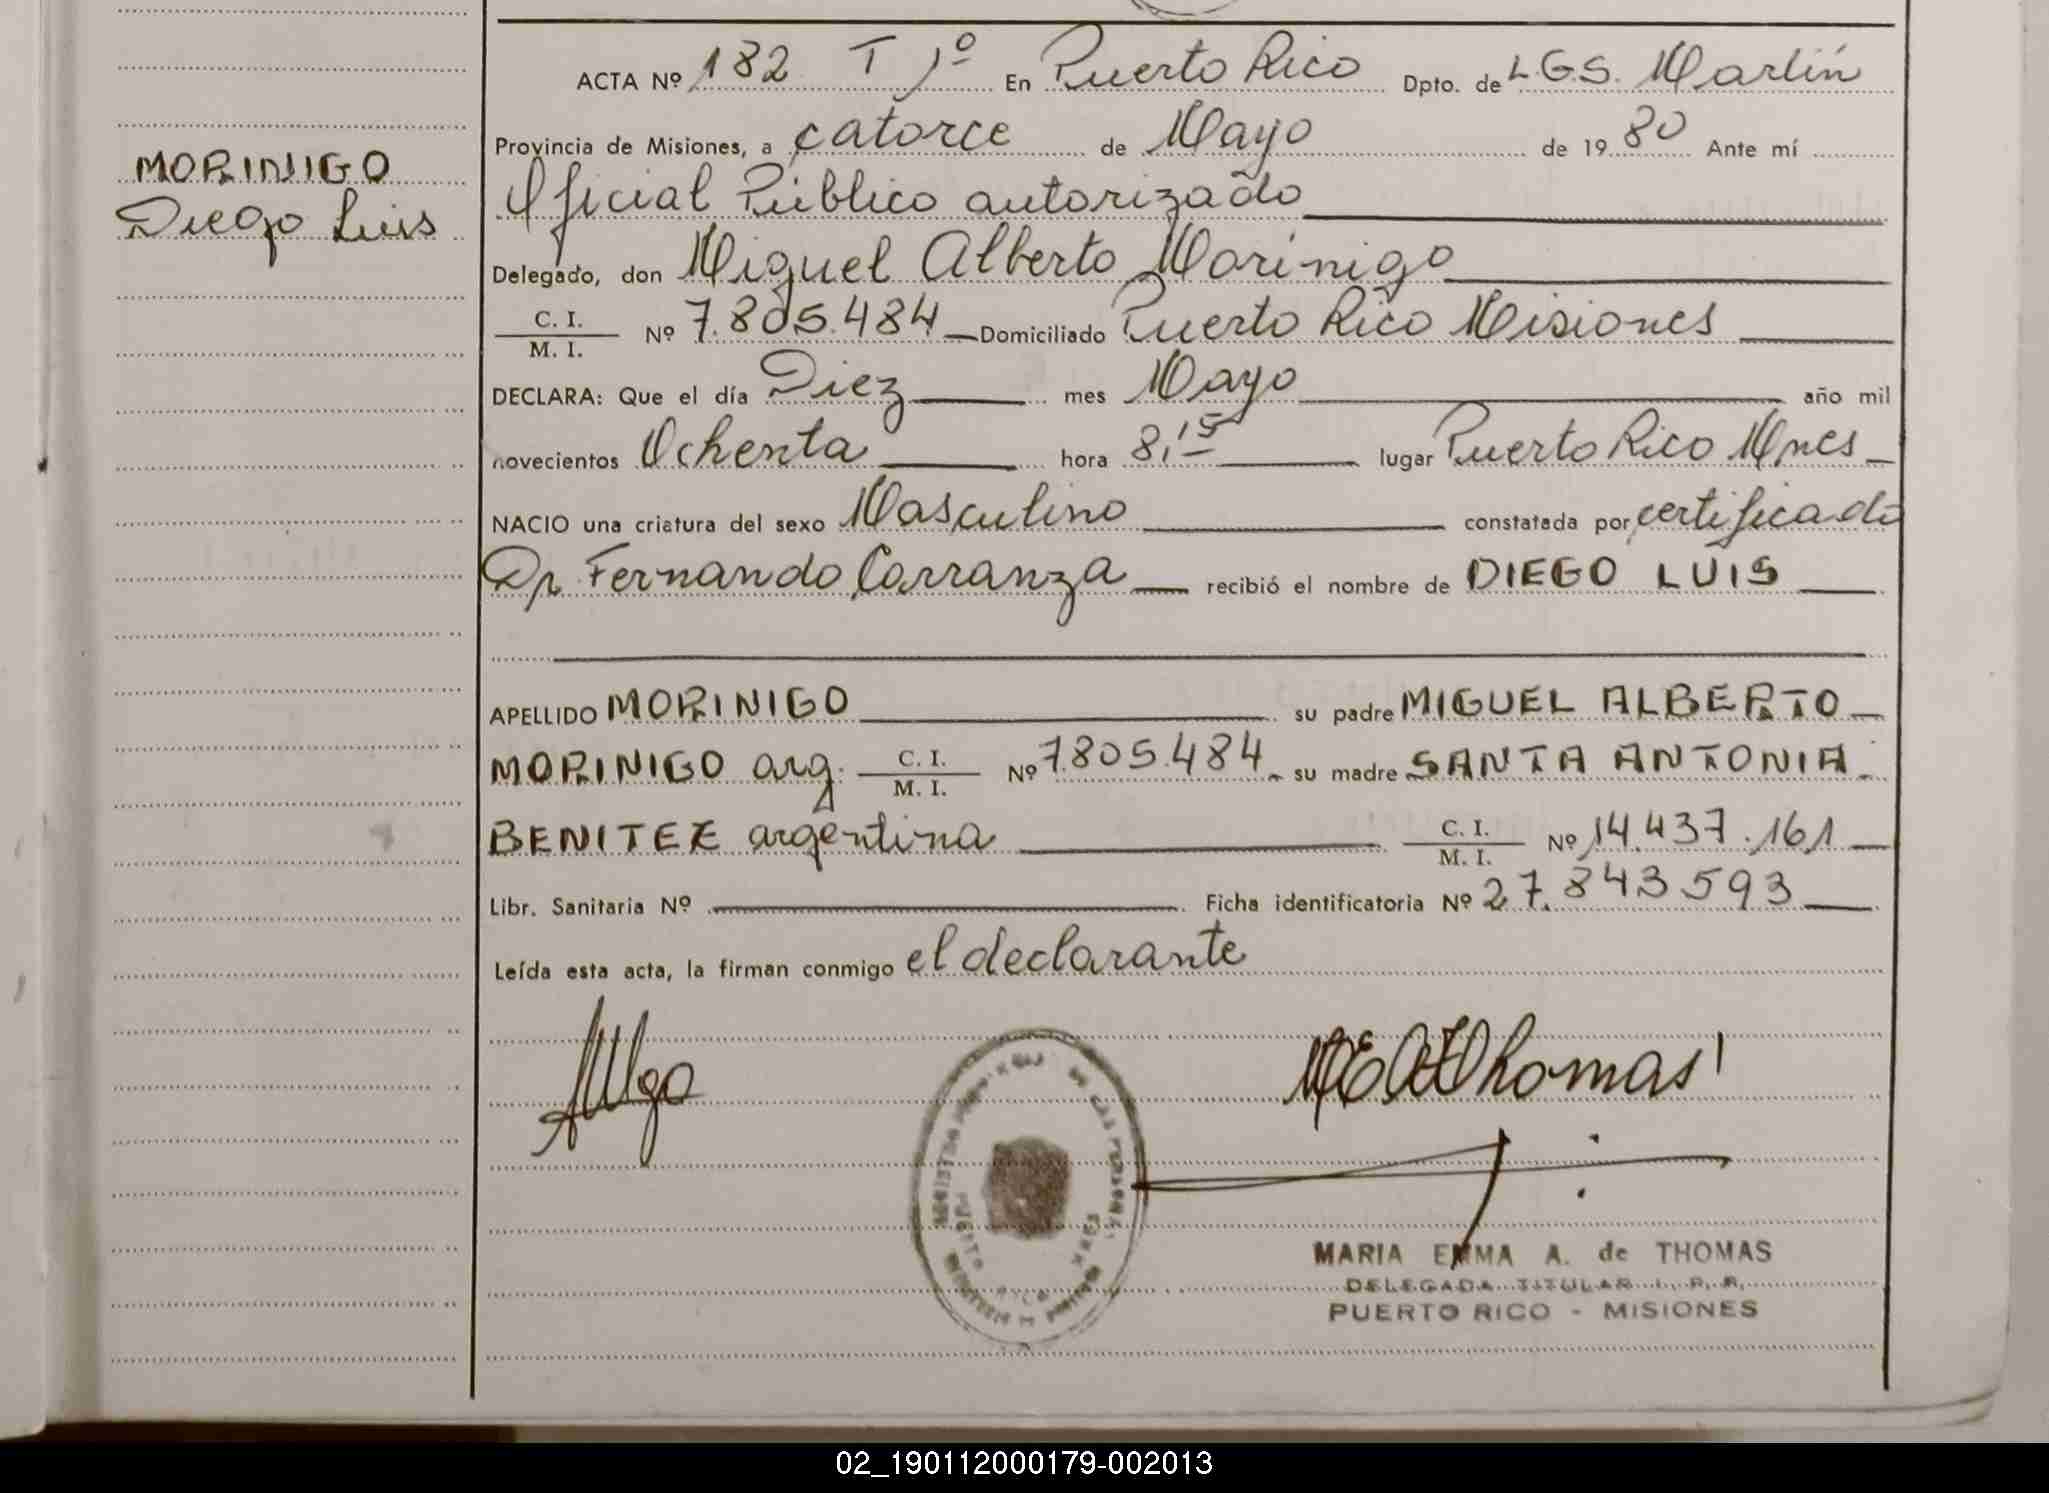 MORINIGO
Diego Luis
ACTA Nº 182 T 1º En Puerto Rico Dpto. de L.G.S. Martín
Provincia de Misiones, a catorce de Mayo de 1980 Ante mí
Oficial Público autorizado
Delegado, don Miguel Alberto Morinigo
C. I.
M. I. Nº 7.805.484 Domiciliado Puerto Rico Misiones
DECLARA: Que el día Diez mes Mayo año mil
novecientos Ochenta hora 8,15 lugar Puerto Rico Mnes
NACIO una criatura del sexo Masculino constatada por certificado
Dr. Fernando Carranza recibió el nombre de DIEGO LUIS
APELLIDO MORINIGO su padre MIGUEL ALBERTO
MORINIGO arg. C. I. M. I. Nº 7.805.484 su madre SANTA ANTONIA
BENITEZ argentina C. I. M. I. Nº 14.437.161
Libr. Sanitaria Nº Ficha identificatoria Nº 27.843593
Leída esta acta, la firman conmigo el declarante
MEAdeThomas
MARIA EMMA A. de THOMAS
DELEGADA TITULAR I. R. P.
PUERTO RICO - MISIONES
02_190112000179-002013